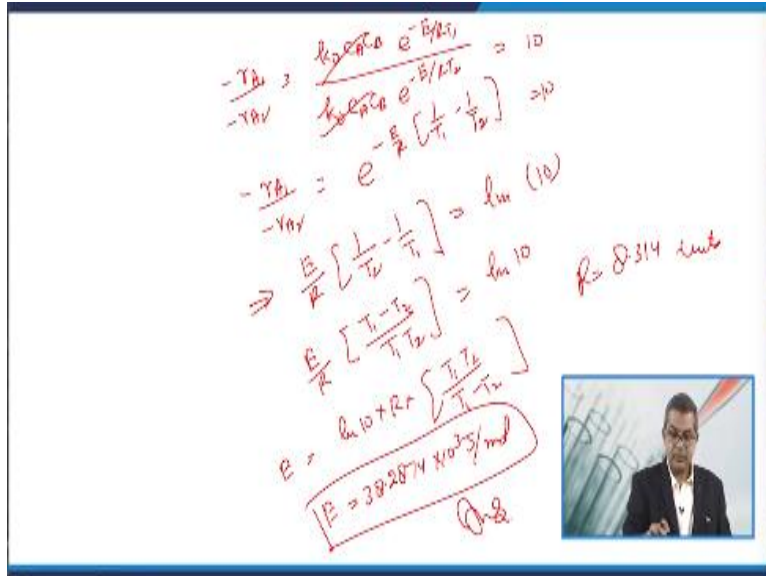 -rA₁ / -rA₂ = k₀ C_A C_B e^(-E/RT₁) / k₀ C_A C_B e^(-E/RT₂) = 10
-rA₁ / -rA₂ = e^(-E/R [1/T₁ - 1/T₂]) = 10
⇒ E/R [1/T₂ - 1/T₁] = ln (10)
E/R [T₁-T₂ / T₁T₂] = ln 10
R = 8.314 units
E = ln 10 × R × [T₁T₂ / T₁-T₂]
E = 38.2874 × 10³ J/mol
Ans